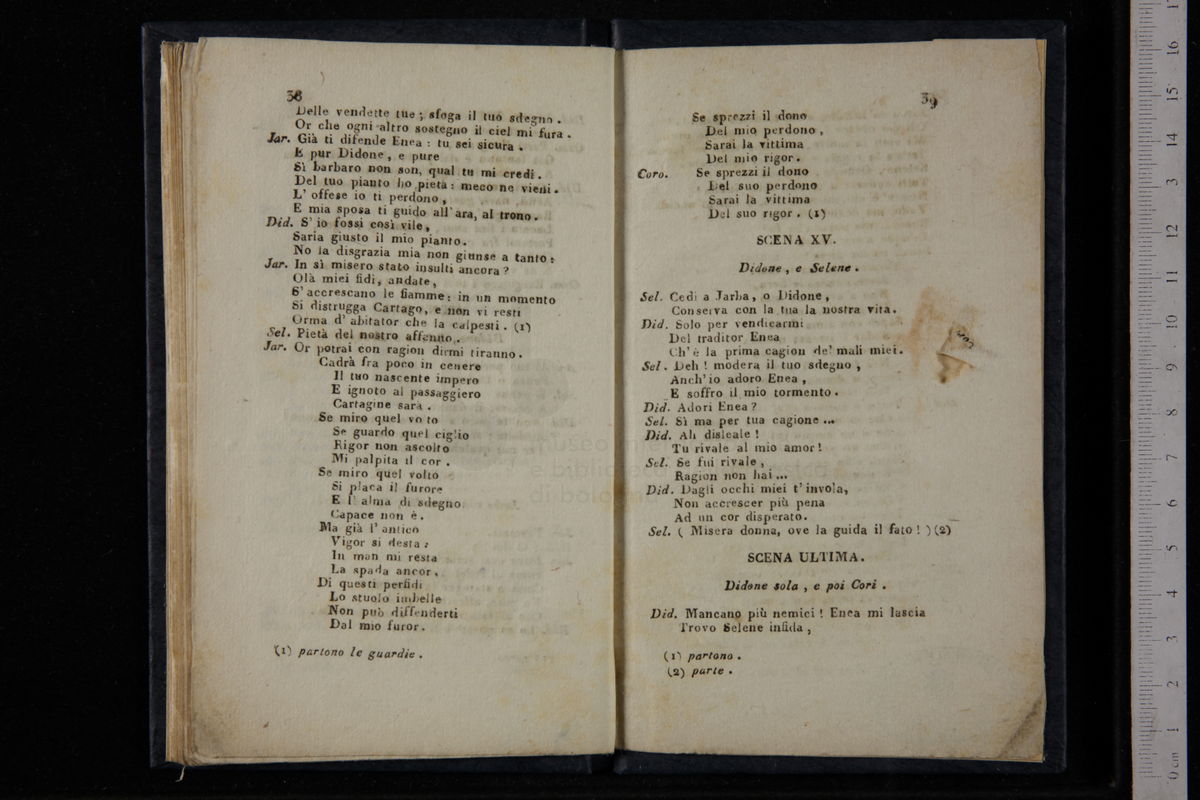 38
Delle vendette tue ; sfoga il tuo sdegno .
Or che ogni altro sostegno il ciel mi fura .
Jar. Già ti difende Enea : tu sei sicura .
E pur Didone , e pure
Sì barbaro non son, qual tu mi credi .
Del tuo pianto ho pietà : meco ne vieni .
L' offese io ti perdono ,
E mia sposa ti guido all' ara, al trono .
Did. S' io fossi così vile ,
Saria giusto il mio pianto .
No la disgrazia mia non giunse a tanto :
Jar. In sì misero stato insulti ancora ?
Olà miei fidi, andate,
S' accrescano le fiamme : in un momento
Si distrugga Cartago, e non vi resti
Orma d' abitator che la calpesti . (1)
Sel. Pietà del nostro affanno .
Jar. Or potrai con ragion dirmi tiranno .
Cadrà fra poco in cenere
Il tuo nascente impero
E ignoto al passaggiero
Cartagine sarà .
Se miro quel volto
Se guardo quel ciglio
Rigor non ascolto
Mi palpita il cor .
Se miro quel volto
Si placa il furore
E l' alma di sdegno
Capace non è .
Ma già l' antico
Vigor si desta :
In man mi resta
La spada ancor .
Di questi perfidi
Lo stuolo imbelle
Non può diffenderti
Dal mio furor .
(1) partono le guardie .
39
Se sprezzi il dono
Del mio perdono ,
Sarai la vittima
Del mio rigor .
Coro. Se sprezzi il dono
Del suo perdono
Sarai la vittima
Del suo rigor . (1)
SCENA XV.
Didone , e Selene .
Sel. Cedi a Jarba , o Didone ,
Conserva con la tua la nostra vita .
Did. Solo per vendicarmi
Del traditor Enea
Ch' è la prima cagion de' mali miei .
Sel . Deh ! modera il tuo sdegno ,
Anch' io adoro Enea ,
E soffro il mio tormento .
Did. Adori Enea ?
Sel. Sì ma per tua cagione ...
Did. Ah disleale !
Tu rivale al mio amor !
Sel. Se fui rivale ,
Ragion non hai ...
Did. Dagli occhi miei t' invola ,
Non accrescer più pena
Ad un cor disperato .
Sel. ( Misera donna, ove la guida il fato ! ) (2)
SCENA ULTIMA.
Didone sola , e poi Cori .
Did. Mancano più nemici ! Enea mi lascia
Trovo Selene infida ,
(1) partono .
(2) parte .